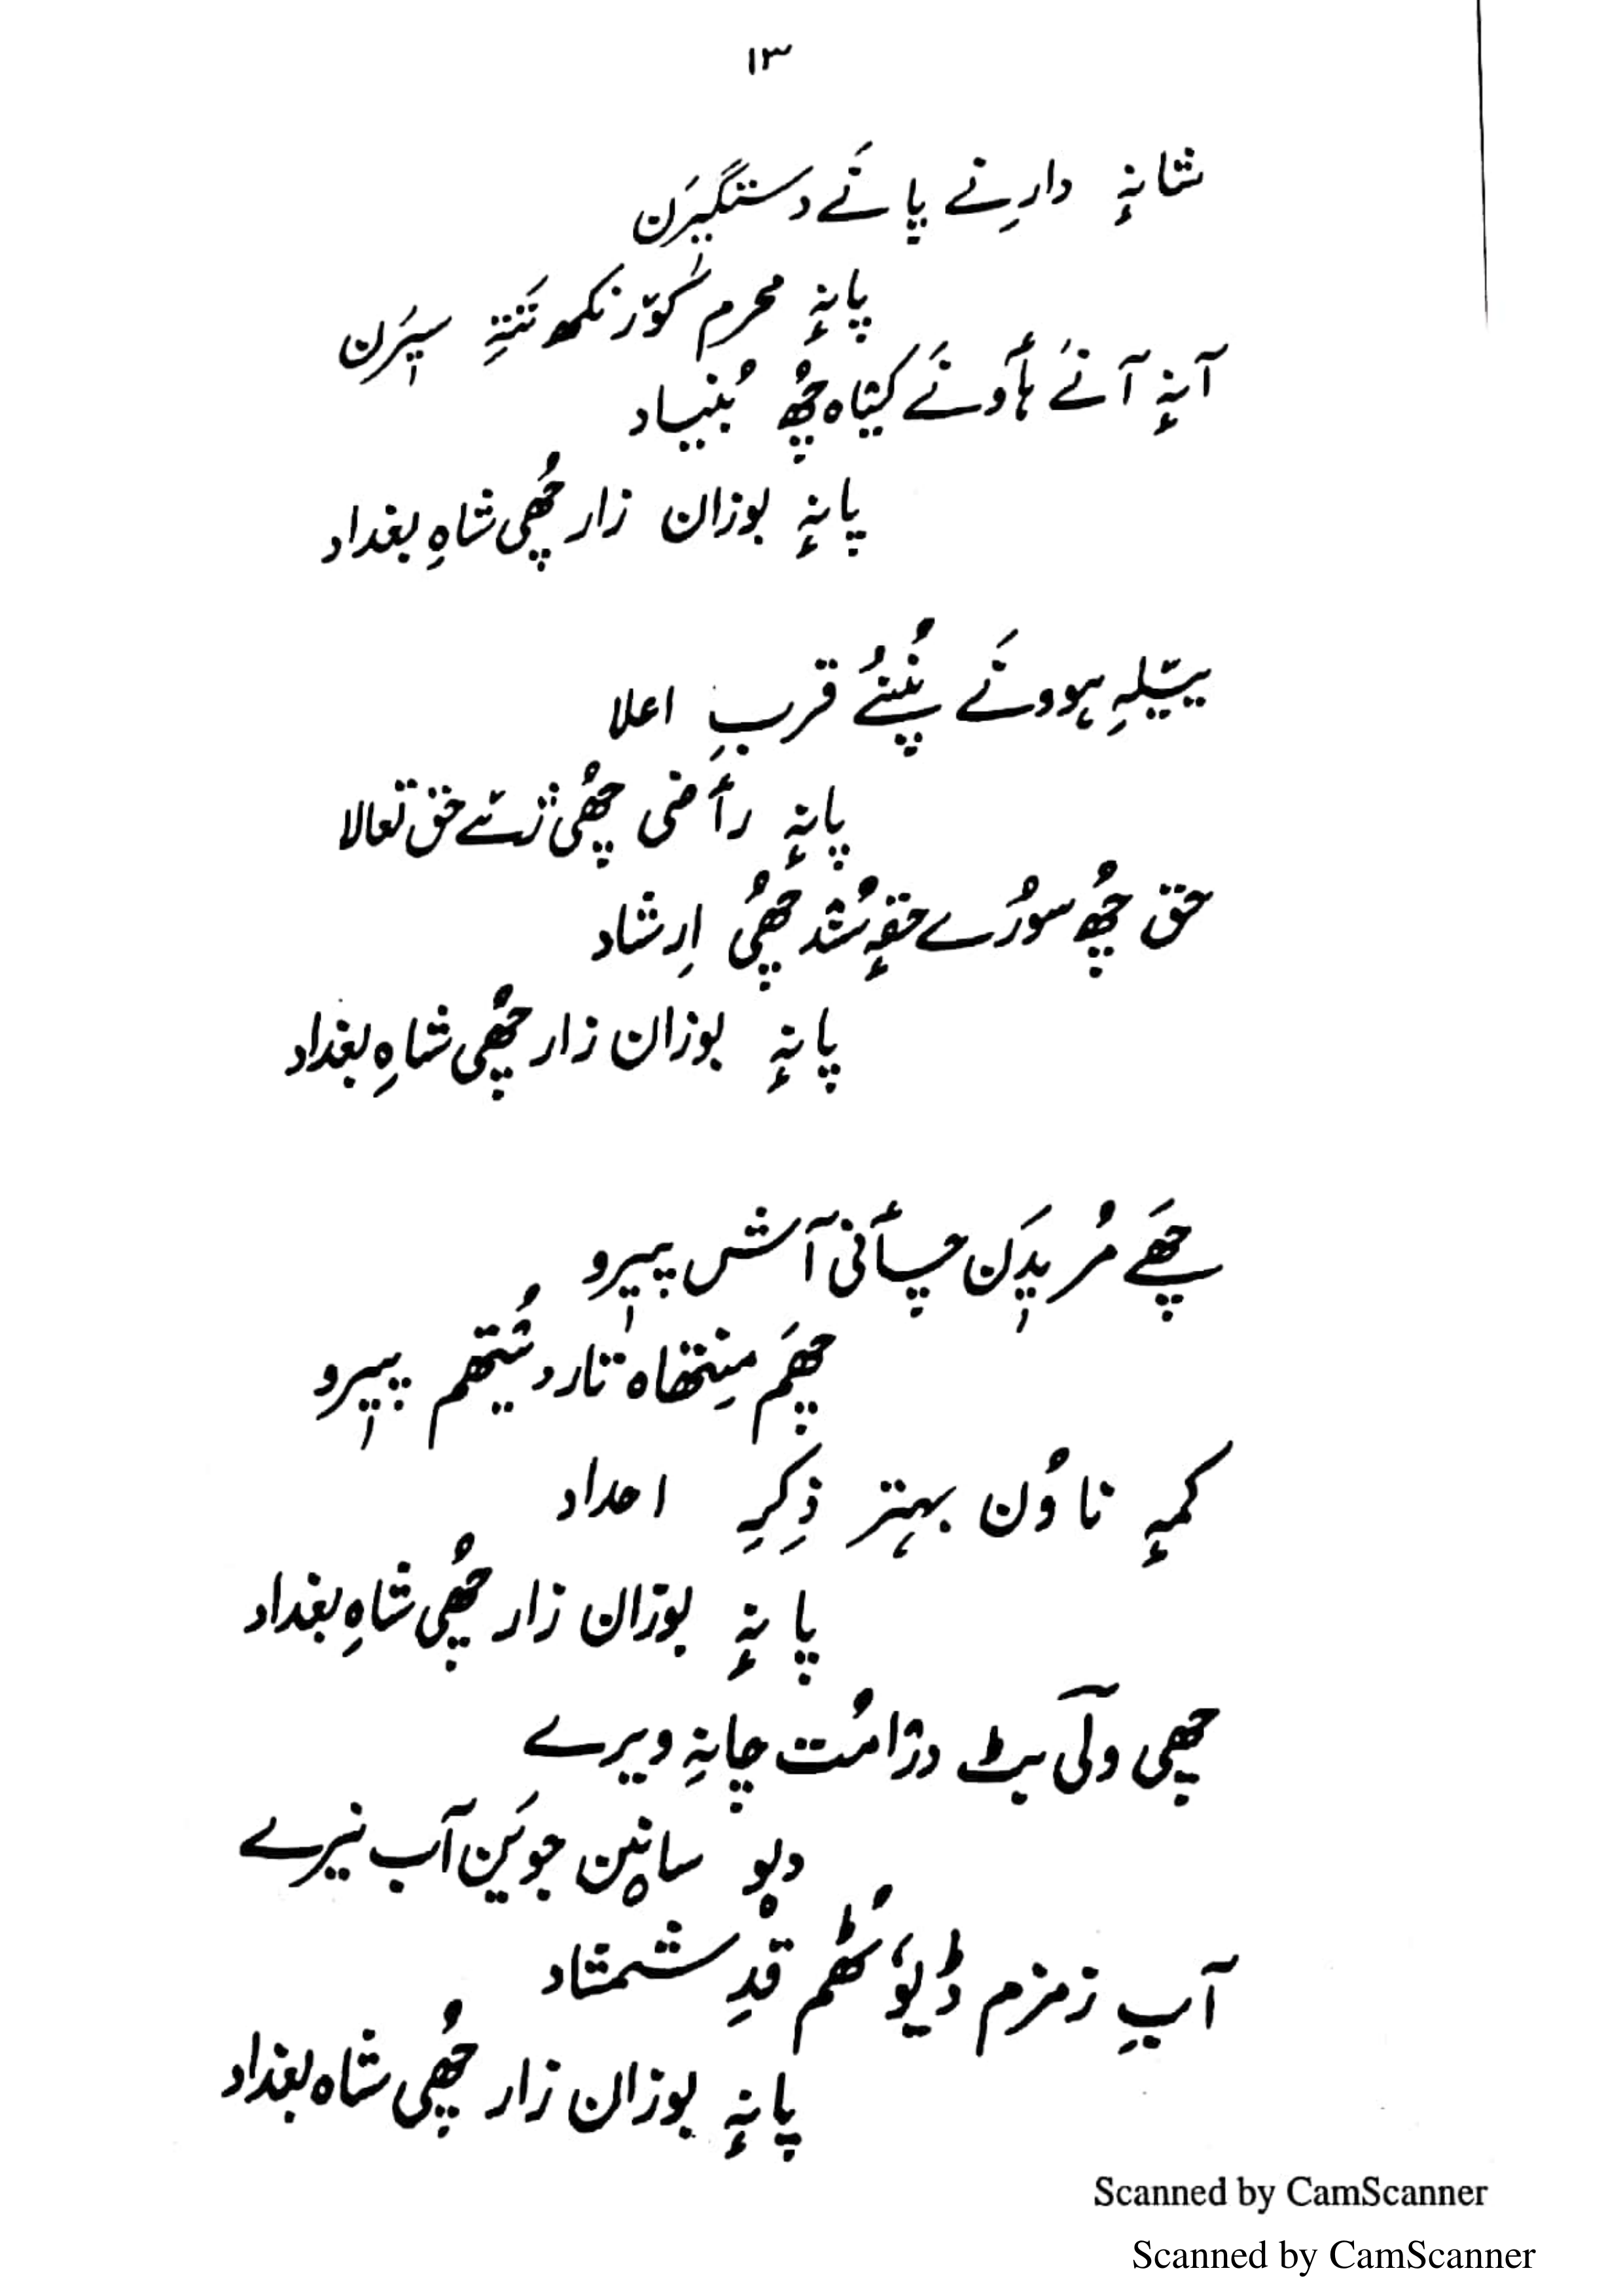 ١٣
شانہٕ دارِنے پانَے دستگیرَن
پانہٕ محرم کوٚرنکھ تَتہِ سٕپرَن
آنہٕ آنے ہٲونَے کیٛاہ چھُ بُنیاد
پانہٕ بوزان زار چھُی شاہِ بغداد
ییٚلہِ ہوونَے پُننُے قربِ اعلا
پانہٕ رٲضی چھُی ژےٚ حق تعالا
حق چھُ سورُے حقہٕ سُند چھُی اِرشاد
پانہٕ بوزان زار چھُی شاہِ بغداد
چھَے مُریدَن چٲنی آش پیرو
چھَم مِنتھاہ تار دِیُتھم پیرو
کمہِ ناوُن بہتر ذِکرِ احداد
پانہٕ بوزان زار چھُی شاہِ بغداد
چھِی ولی بٔڈ درٛامُت چانہِ ویرے
دیو سانٕن جویَن آب نیرے
آبِ زمزم ڈیوٗٹھُم قدِ شمشاد
پانہٕ بوزان زار چھُی شاہ بغداد
Scanned by CamScanner
Scanned by CamScanner